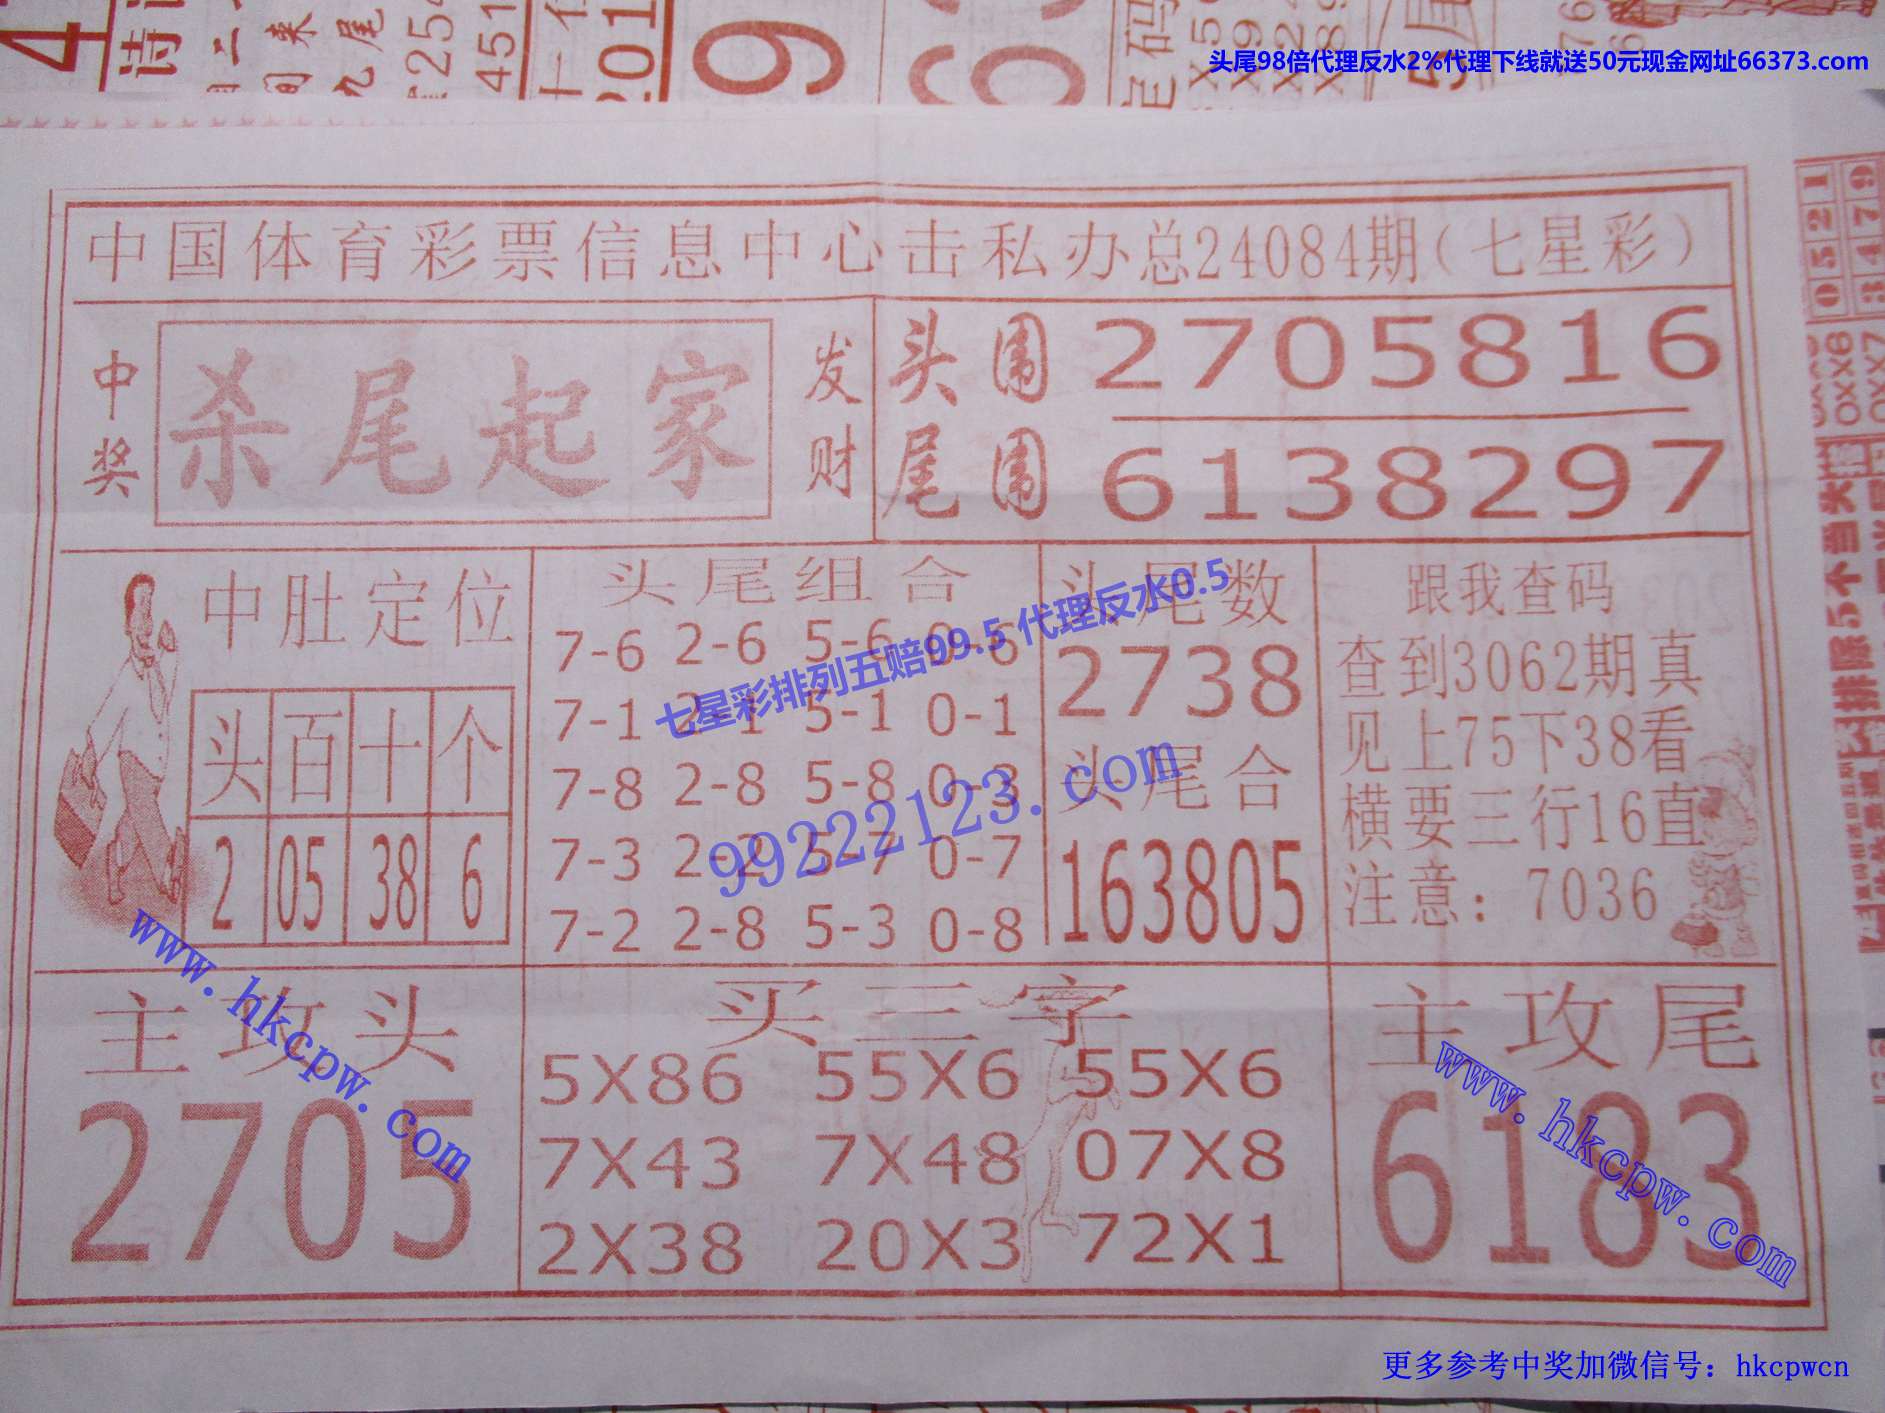 头尾98倍代理反水2%代理下线就送50元现金网址66373.com
中国体育彩票信息中心击私办总24084期(七星彩)
中奖
杀尾起家
发财
头围 2705816
尾围 6138297
中肚定位
头 百 十 个
2 05 38 6
头尾组合
7-6 2-6 5-6 0-6
7-1 2-1 5-1 0-1
7-8 2-8 5-8 0-3
7-3 2-2 5-7 0-7
7-2 2-8 5-3 0-8
头尾数
2738
头尾合
163805
跟我查码
查到3062期真
见上75下38看
横要三行16直
注意:7036
七星彩排列五赔99.5 代理反水0.5
99222123.com
主攻头
2705
买三字
5X86 55X6 55X6
7X43 7X48 07X8
2X38 20X3 72X1
主攻尾
6183
www.hkcpw.com
www.hkcpw.com
更多参考中奖加微信号:hkcpwcn